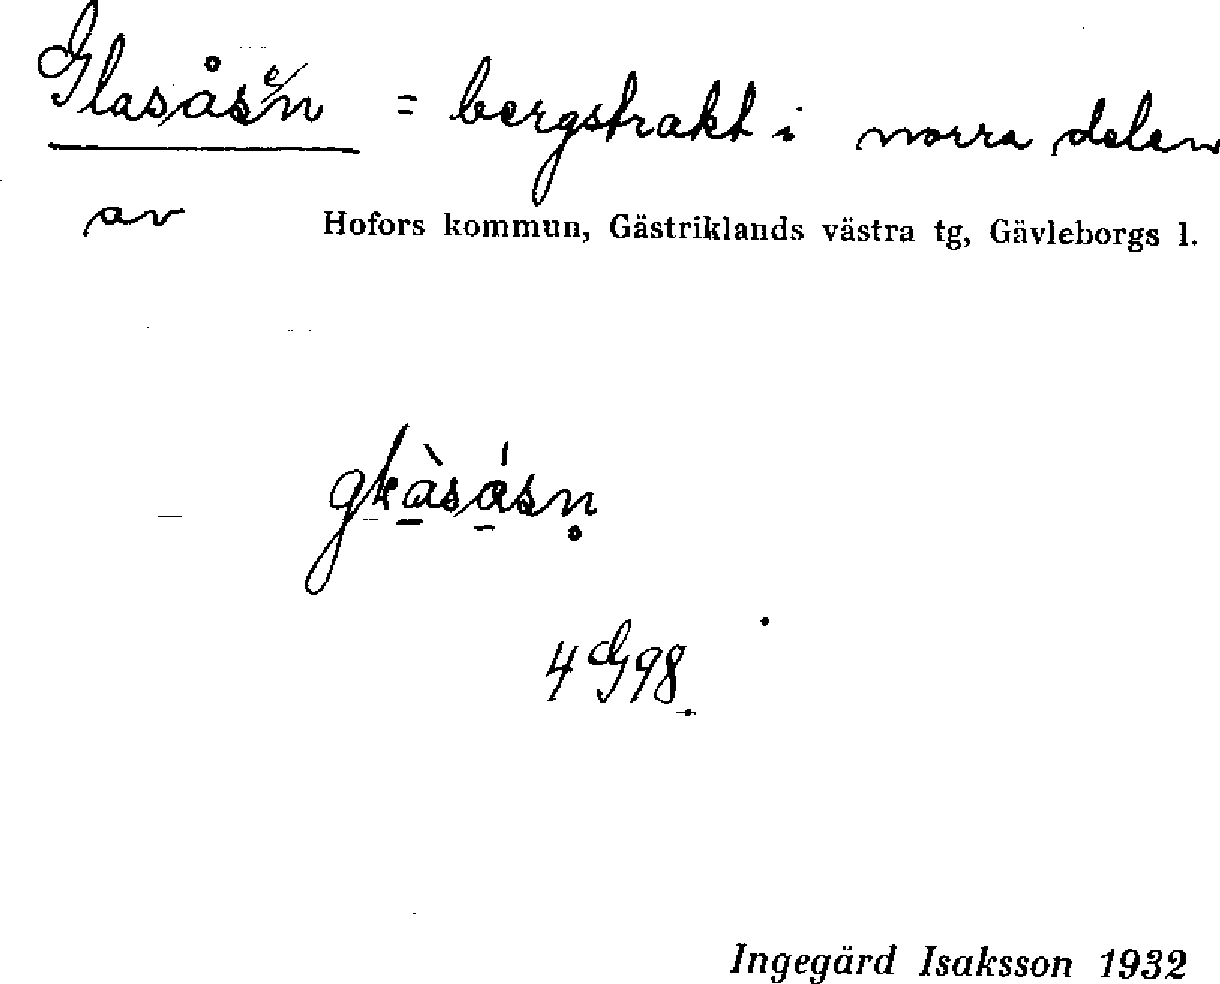 Glasåsen = bergstrakt i norra delen
av Hofors kommun, Gästriklands västra tg, Gävleborgs l.
4 G 98.
Ingegärd Isaksson 1932